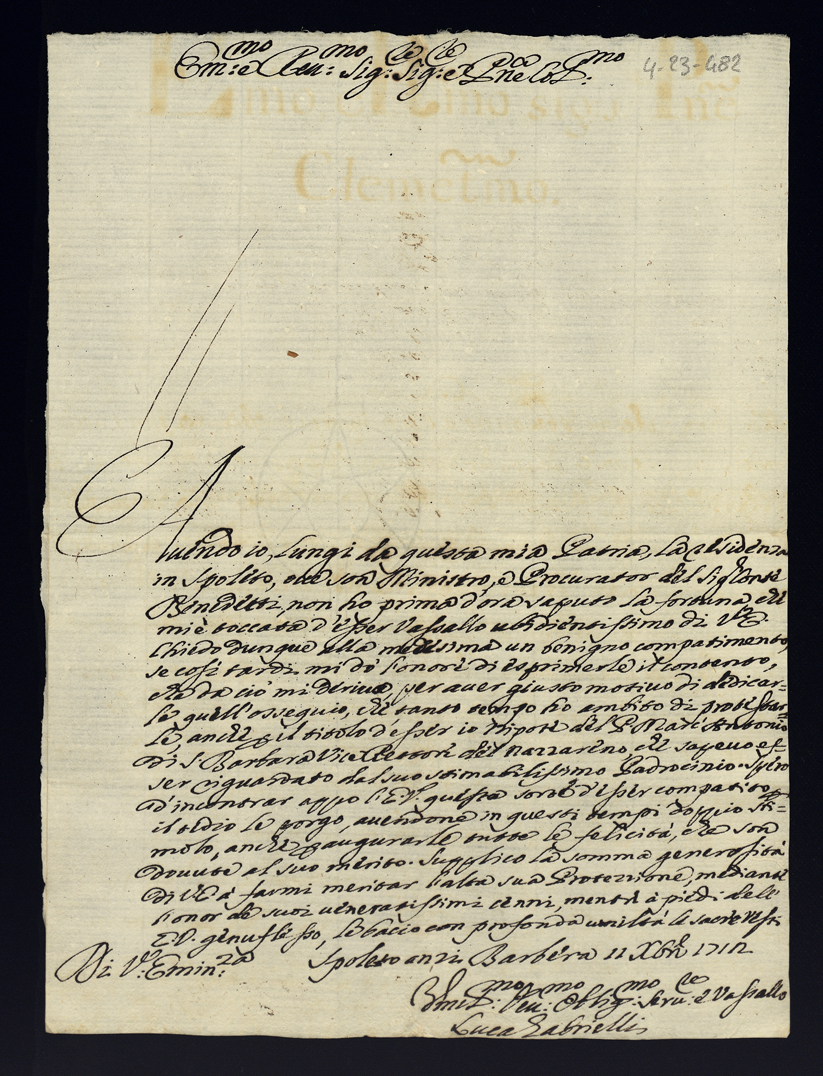 Em:mo e Reu:mo Sig:re Sig:re e Pne Col:mo
4-23-482
Auendo io, lungi da questa mia Patria, la residenza
in Spoleto, oue son Ministro, e Procurator del Sig.r Conte
Benedetti, non ho prima d'ora saputo la fortuna che
mi è toccata d'esser Vassallo ubidientissimo di V.E.
Chiedo dunque alla medesima un benigno compatimento,
se così tardi mi dò l'onore di esprimerle il contento,
che da ciò mi deriua, per auer giusto motiuo di dedicar=
le quell'ossequio, che tanto tempo ho ambito di protestar=
le, anche p il titolo d'esser io Nipote del P. Marc'Antonio
di S. Barbara Vice Rettore del Nazzareno, che sapeuo es=
ser riguardato dal suo stimabilissimo Padrocinio. Spero
d'incontrar appo l'E.V. questa sorte d'esser compatito
il tedio le porgo, auendone in questi tempi doppio sti=
molo, anche p augurarle tutte le felicità, che son
douute al suo merito. Supplico la somma generosità
di V.E. à farmi meritar l'alta sua Protezione, mediante
l'onor de suoi veneratissimi cenni, mentre à piedi dell'
E.V. genuflesso, le bacio con profonda umiltà le sacre Vesti
Di V. Emin:za Spoleto anzi Barbéra 11 Xbre 1712
Vmil:mo Deu:mo Oblig:mo Seru:re e Vassallo
Luca Gabrielli